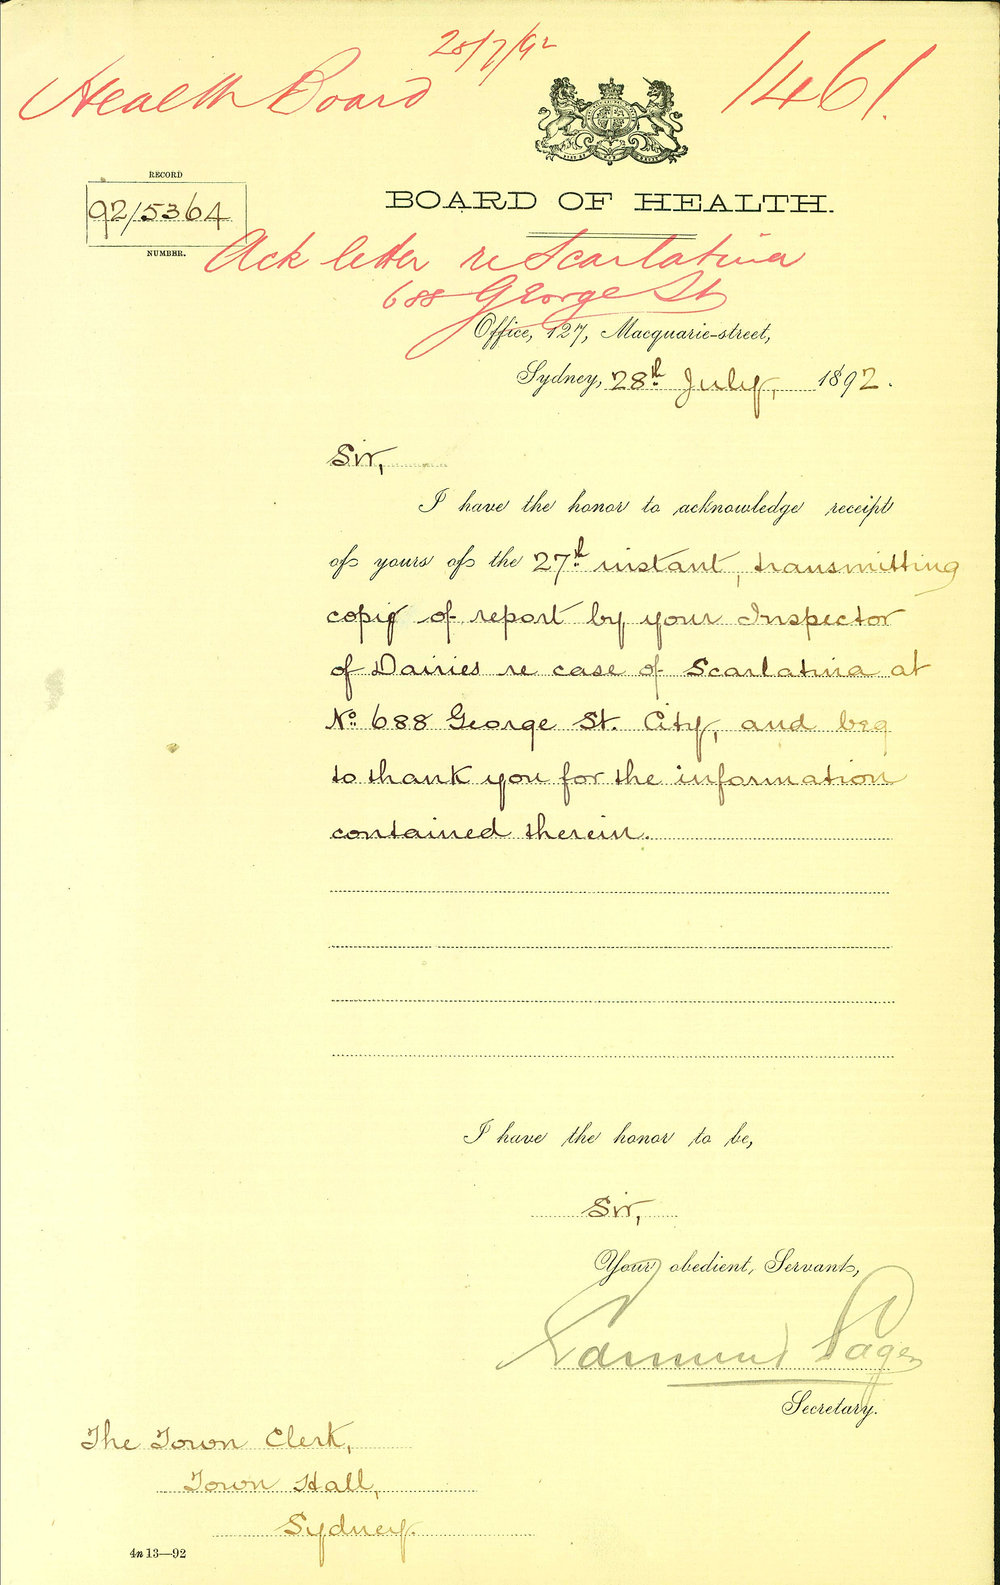 28/7/92
Health Board
1461.
RECORD
92/5364
NUMBER.
BOARD OF HEALTH.
Ack letter re Scarlatina
688 George St
Office, 127, Macquarie-street,
Sydney, 28th July, 1892.
Sir,
I have the honor to acknowledge receipt
of yours of the 27th instant, transmitting
copy of report by your Inspector
of Dairies re case of Scarlatina at
No. 688 George St. City, and beg
to thank you for the information
contained therein.
I have the honor to be,
Sir,
Your obedient Servant,
Edmund Sager
Secretary.
The Town Clerk,
Town Hall,
Sydney.
4n 13—92